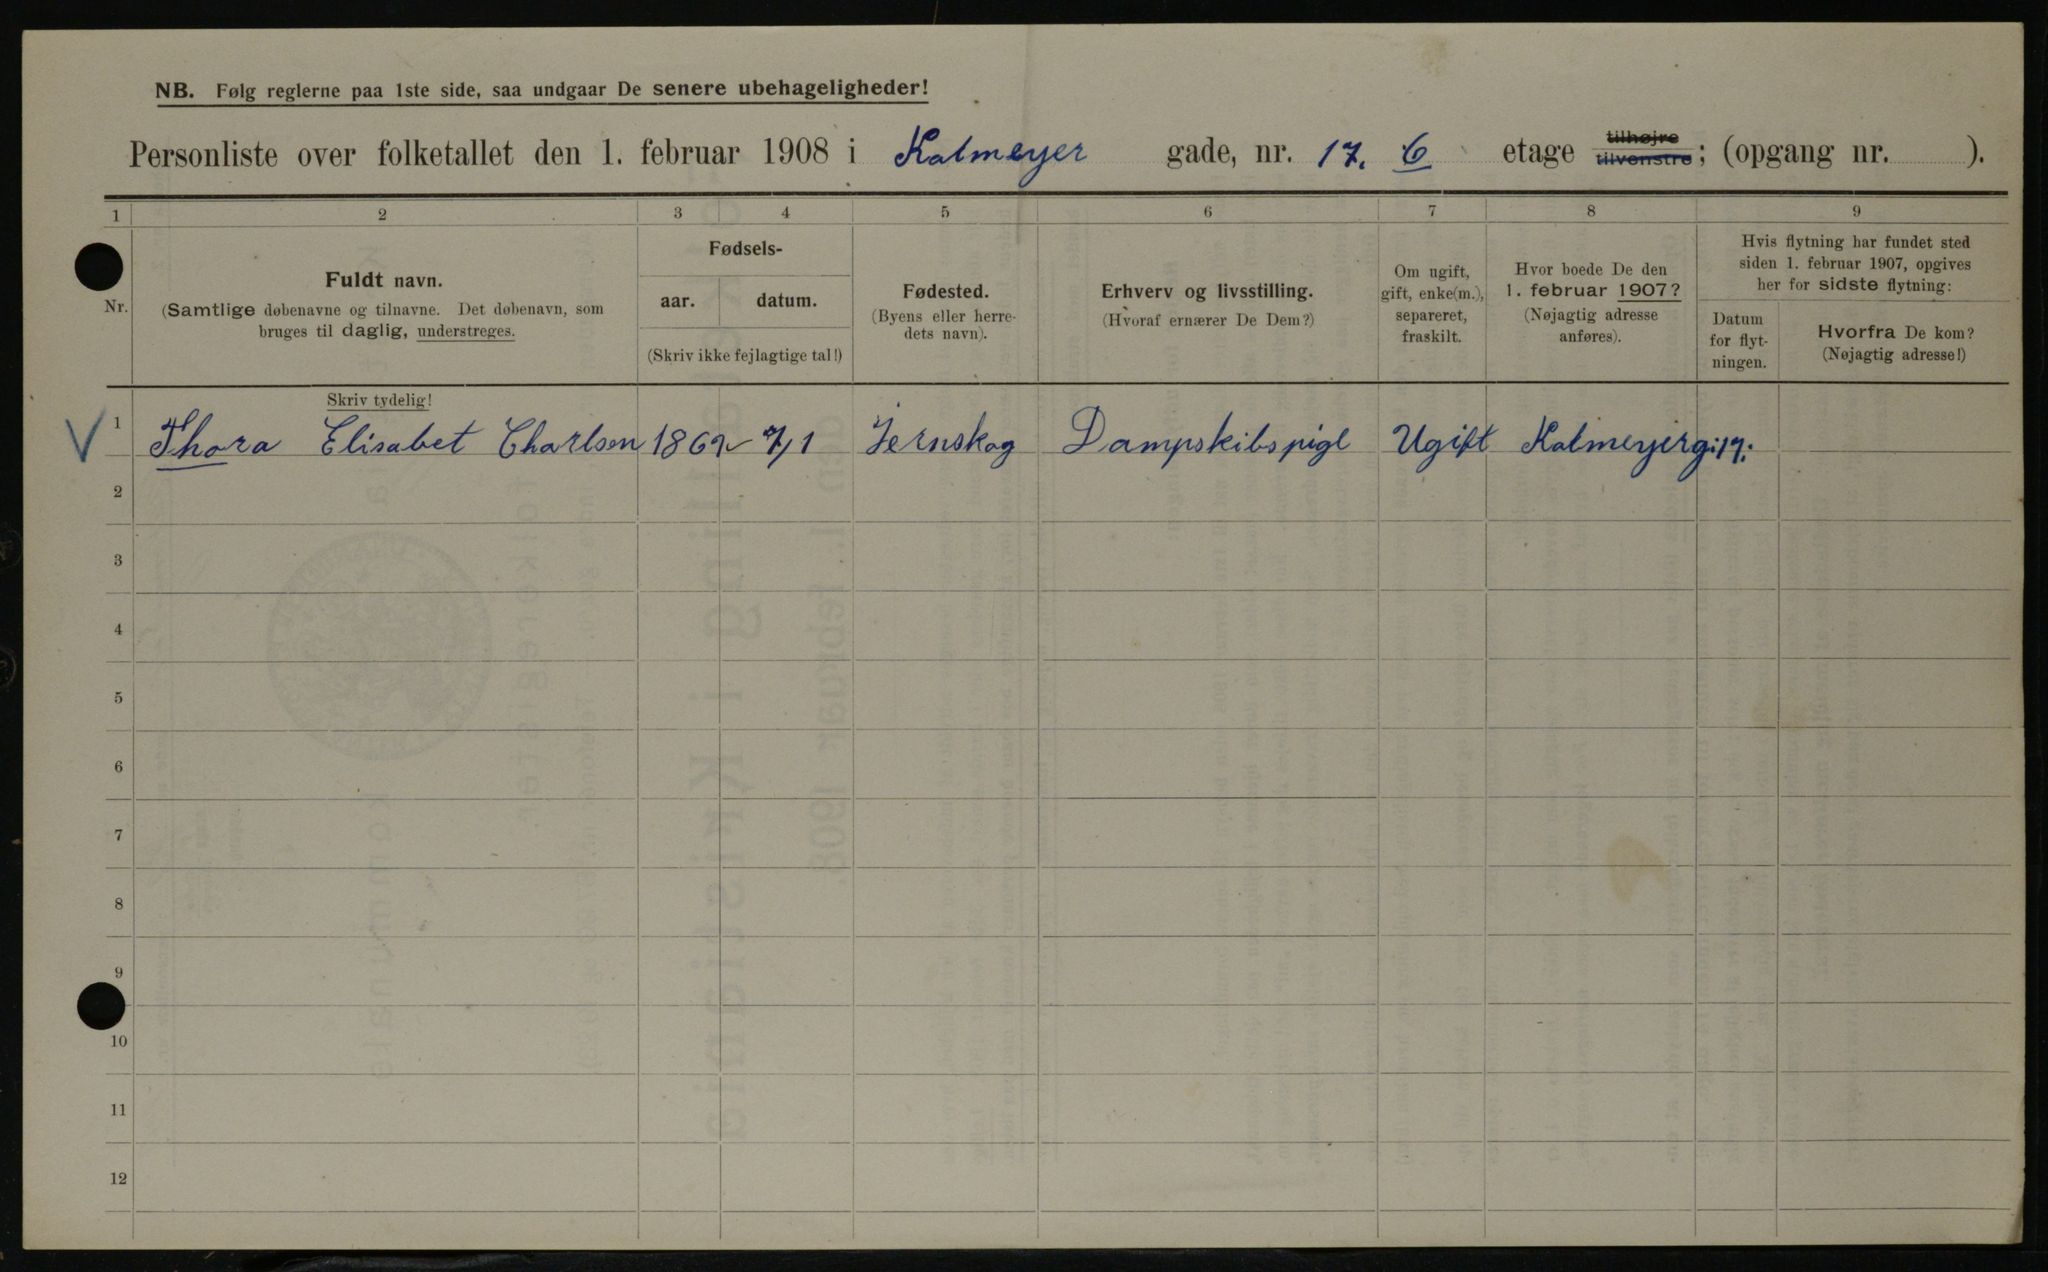 NB. Følg reglerne paa 1ste side, saa undgaar De senere ubehageligheder!
Personliste over folketallet den 1. februar 1908 i Kalmeyer gade, nr. 17. 6 etage tilhøjre tilvenstre; (opgang nr. ).
1 2 3 4 5 6 7 8 9
Nr.
Fuldt navn.
(Samtlige døbenavne og tilnavne. Det døbenavn, som
bruges til daglig, understreges.
Fødsels-
aar. datum.
(Skriv ikke fejlagtige tal!)
Fødested.
(Byens eller herre-
dets navn).
Erhverv og livsstilling.
(Hvoraf ernærer De Dem?)
Om ugift,
gift, enke(m.),
separeret,
fraskilt.
Hvor boede De den
1. februar 1907?
(Nøjagtig adresse
anføres).
Hvis flytning har fundet sted
siden 1. februar 1907, opgives
her for sidste flytning:
Datum
for flyt-
ningen.
Hvorfra De kom?
(Nøjagtig adresse!)
Skriv tydelig!
V 1 Thora Elisabet Charlsen 1862 7/1 Jernskog Dampskibspige Ugift Kalmeyerg: 17:
2
3
4
5
6
7
8
9
10
11
12